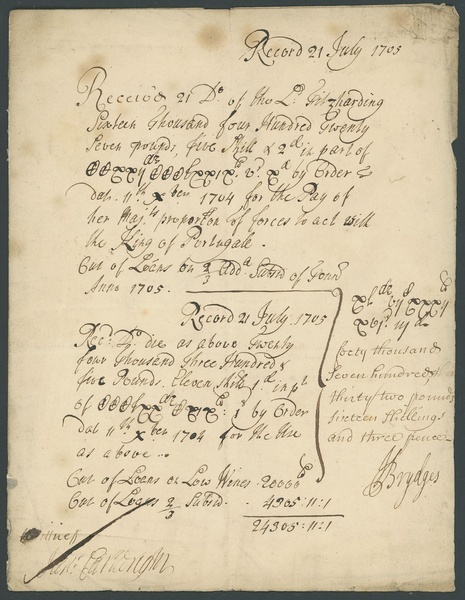 Record 21 July 1705
Received 21 Do. of the Ld. Fitzharding
Sixteen Thousand four Hundred Twenty
Seven pounds five Shill & 2d in part of
by Order
dat. 11th xber 1704 for the Pay of
her Majts proportn of forces to act with
the King of Portugale.
Out of Loans on 2/3 Add. Subsid of
Anno 1705.
Record 21 July 1705
Recd. die as above Twenty
four Thousand Three Hundred &
five Pounds. Eleven Shill 1d in pt
of by Order
dat 11th xber 1704 for the Use
as above
Out of Loans on Low Wines 20000
Out of Loans 2/3 Subsid. 4305:11:1
24305:11:1
forty thousand
Seven hundred
thirty two pounds
sixteen Shillings
and three pence
JBrydges